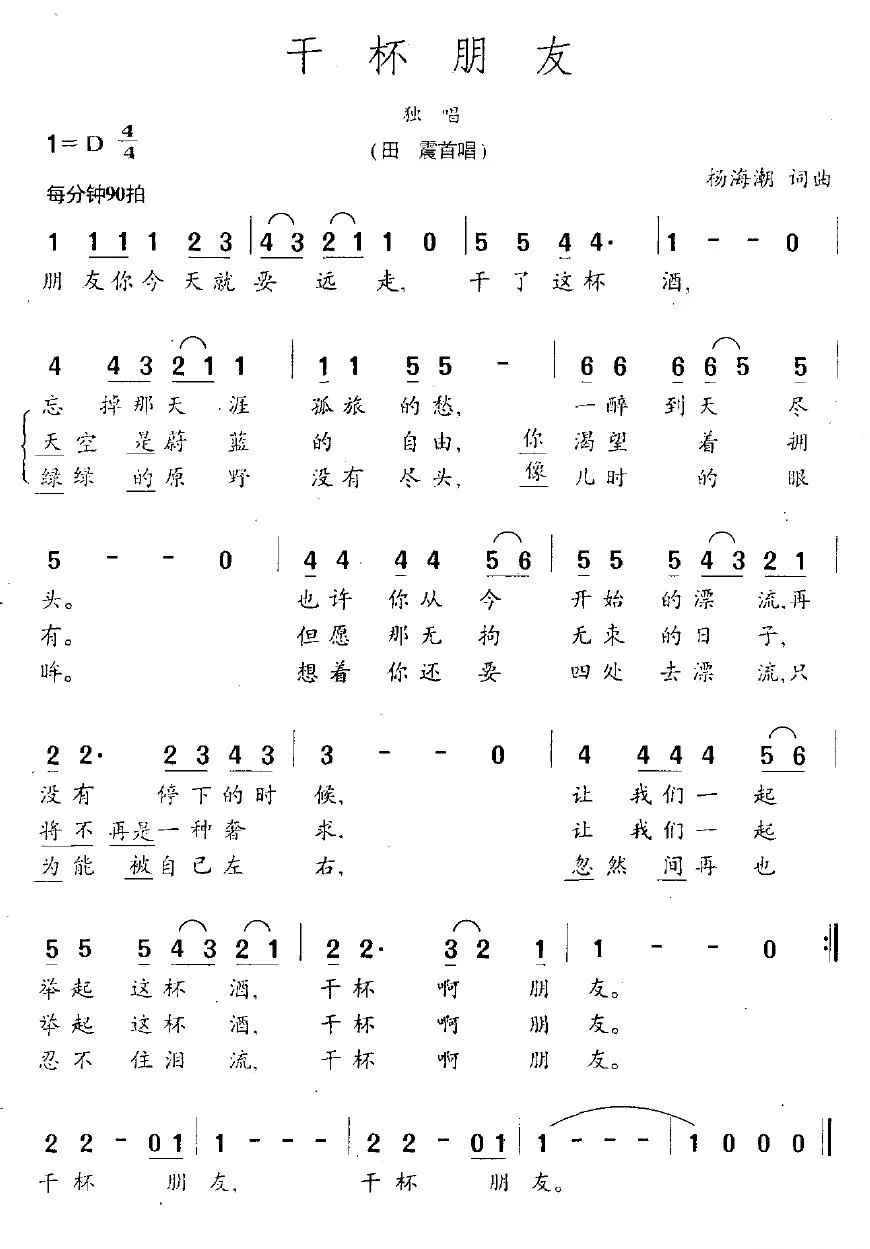 干杯朋友
独唱
1=D 4/4
(田 震首唱)
杨海潮 词曲
每分钟90拍
1 111 1 23 | 43 21 1 0 | 5 5 4 4· | 1 - - 0 |
朋友你今天就要远走, 干了这杯酒,
4 43 21 1 | 1 1 5 5 - | 6 6 6 6 5 5 |
忘掉那天涯孤旅的愁, 一醉到天尽
天空是蔚蓝的自由, 你渴望着拥
绿绿的原野没有尽头, 像儿时的眼
5 - - 0 | 4 4 4 4 56 | 5 5 5 43 21 |
头。 也许你从今开始的漂流,再
有。 但愿那无拘无束的日子,
眸。 想着你还要四处去漂流,只
2 2· 23 43 | 3 - - 0 | 4 444 4 56 |
没有停下的时候, 让我们一起
将不再是一种奢求, 让我们一起
为能被自己左右, 忽然间再也
5 5 5 43 21 | 2 2· 3 2 1 | 1 - - 0 :||
举起这杯酒, 干杯啊朋友。
举起这杯酒, 干杯啊朋友。
忍不住泪流, 干杯啊朋友。
2 2 - 01 | 1 - - - | 2 2 - 01 | 1 - - - | 1 0 0 0 ||
干杯 朋友, 干杯 朋友。